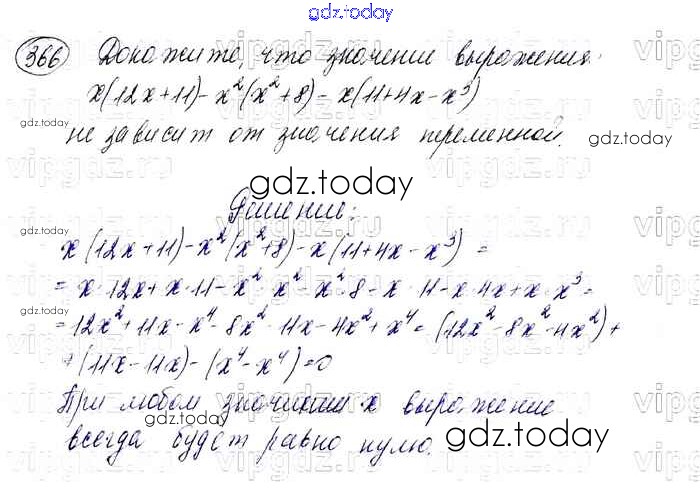 gdz.today
366 Докажите, что значение выражения:
x(12x+11)-x²(x²+8)-x(11+4x-x³)
gdz.today
не зависит от значения переменной.
gdz.today
gdz.today
Решение:
x(12x+11)-x²(x²+8)-x(11+4x-x³)=
=x·12x+x·11-x²·x²-x²·8-x·11-x·4x+x·x³=
=12x²+11x-x⁴-8x²-11x-4x²+x⁴=(12x²-8x²-4x²)+
+(11x-11x)-(x⁴-x⁴)=0
При любом значении x выражение
gdz.today
всегда будет равно нулю.
gdz.today